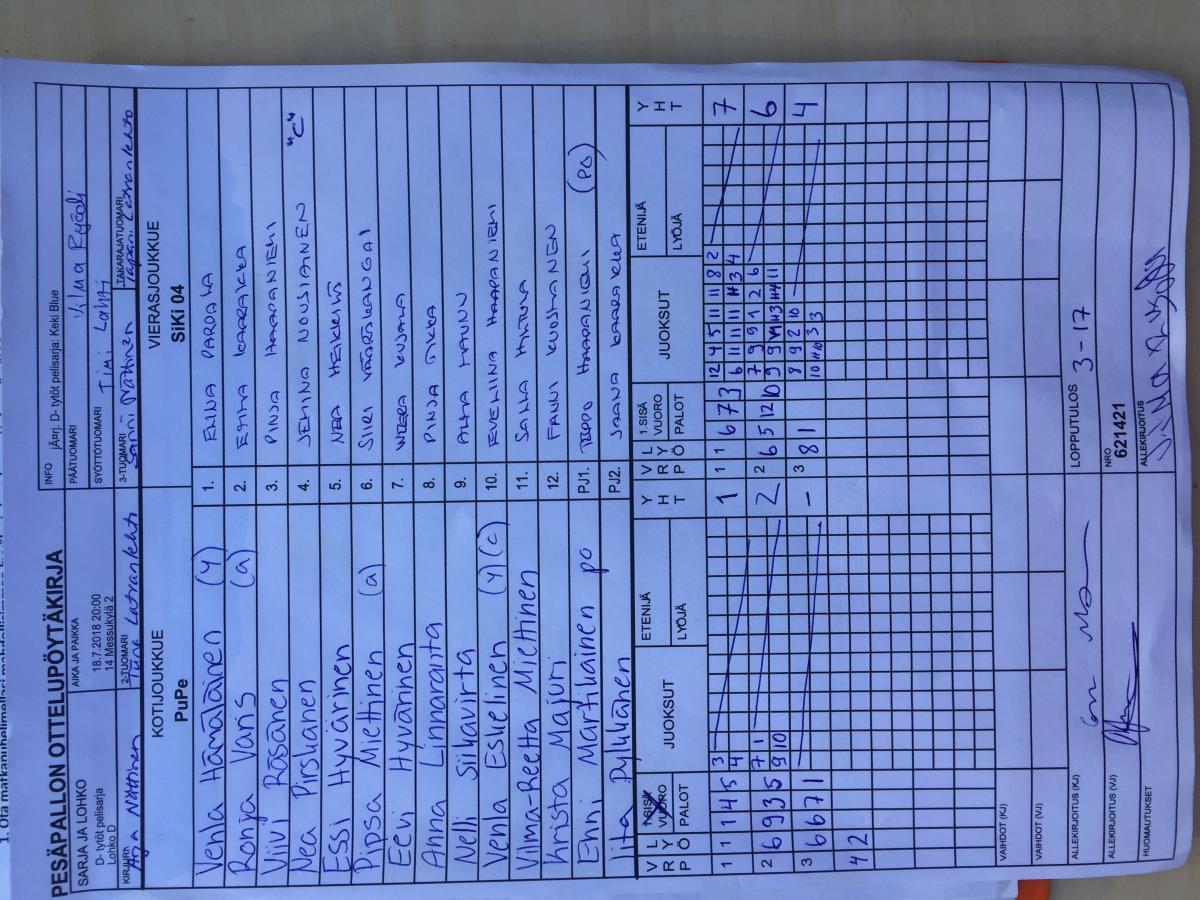 PESÄPALLON OTTELUPÖYTÄKIRJA
SARJA JA LOHKO
D- tytöt pelisarja
Lohko D
AIKA JA PAIKKA
18.7.2018 20:00
14 Messukylä 2
INFO jÃ¤rj. D- tytöt pelisarja: Keki Blue
PÄÄTUOMARI Vilma Ryödi
SYÖTTÖTUOMARI Timi Lahti
KIRJURI Nättinen
2-TUOMARI
3-TUOMARI Sanni Nättinen
TAKARAJATUOMARI Tapani
KOTIJOUKKUE
PuPe
VIERASJOUKKUE
SiKi 04
Venla Hämäläinen (y) 1. EMMA PARDAHA
Ronja Varis (a) 2. KAARAKKA
Viivi Räsänen 3. PINJA HAAPANIEMI
Nea Pirskanen 4. JEMINA NOUSIAINEN "C"
Essi Hyvärinen 5. NEA HEIKKILÄ
Pipsa Miettinen (a) 6. SIRI VÄÄTÄKANGAS
Eevi Hyvärinen 7. VEERA KUJALA
Anna Linnaranta 8. PINJA
Nelli Siikavirta 9.
Venla Eskelinen (y) (c) 10. EVELIINA HAAPANIEMI
Vilma-Reetta Miettinen 11. SAANA
Krista Majuri 12. FANNI KUOSMANEN
Enni Martikainen po PJ1. TEPPO HAAPANIEMI (PO)
Iita Pylykänen PJ2. JAANA KAARAKKA
V L
R Y
P Ö
1.SISÄ
VUORO
PALOT
JUOKSUT
ETENIJÄ
LYÖJÄ
Y
H
T
V L
R Y
P Ö
1.SISÄ
VUORO
PALOT
JUOKSUT
ETENIJÄ
LYÖJÄ
Y
H
T
1 1 1 4 5 3 1 1 1 6 7 3 12 4 5 11 11 8 2 7
4
2 6 9 3 5 7 1 2 2 6 5 12 10 7 9 9 1 2 6 6
9 10
3 6 6 7 1 - 3 8 1 8 9 2 10 4
10 11 10 3 3
4 2
VAIHDOT (KJ)
VAIHDOT (VJ)
ALLEKIRJOITUS (KJ)
LOPPUTULOS 3-17
ALLEKIRJOITUS (VJ)
NRO
621421
HUOMAUTUKSET
ALLEKIRJOITUS